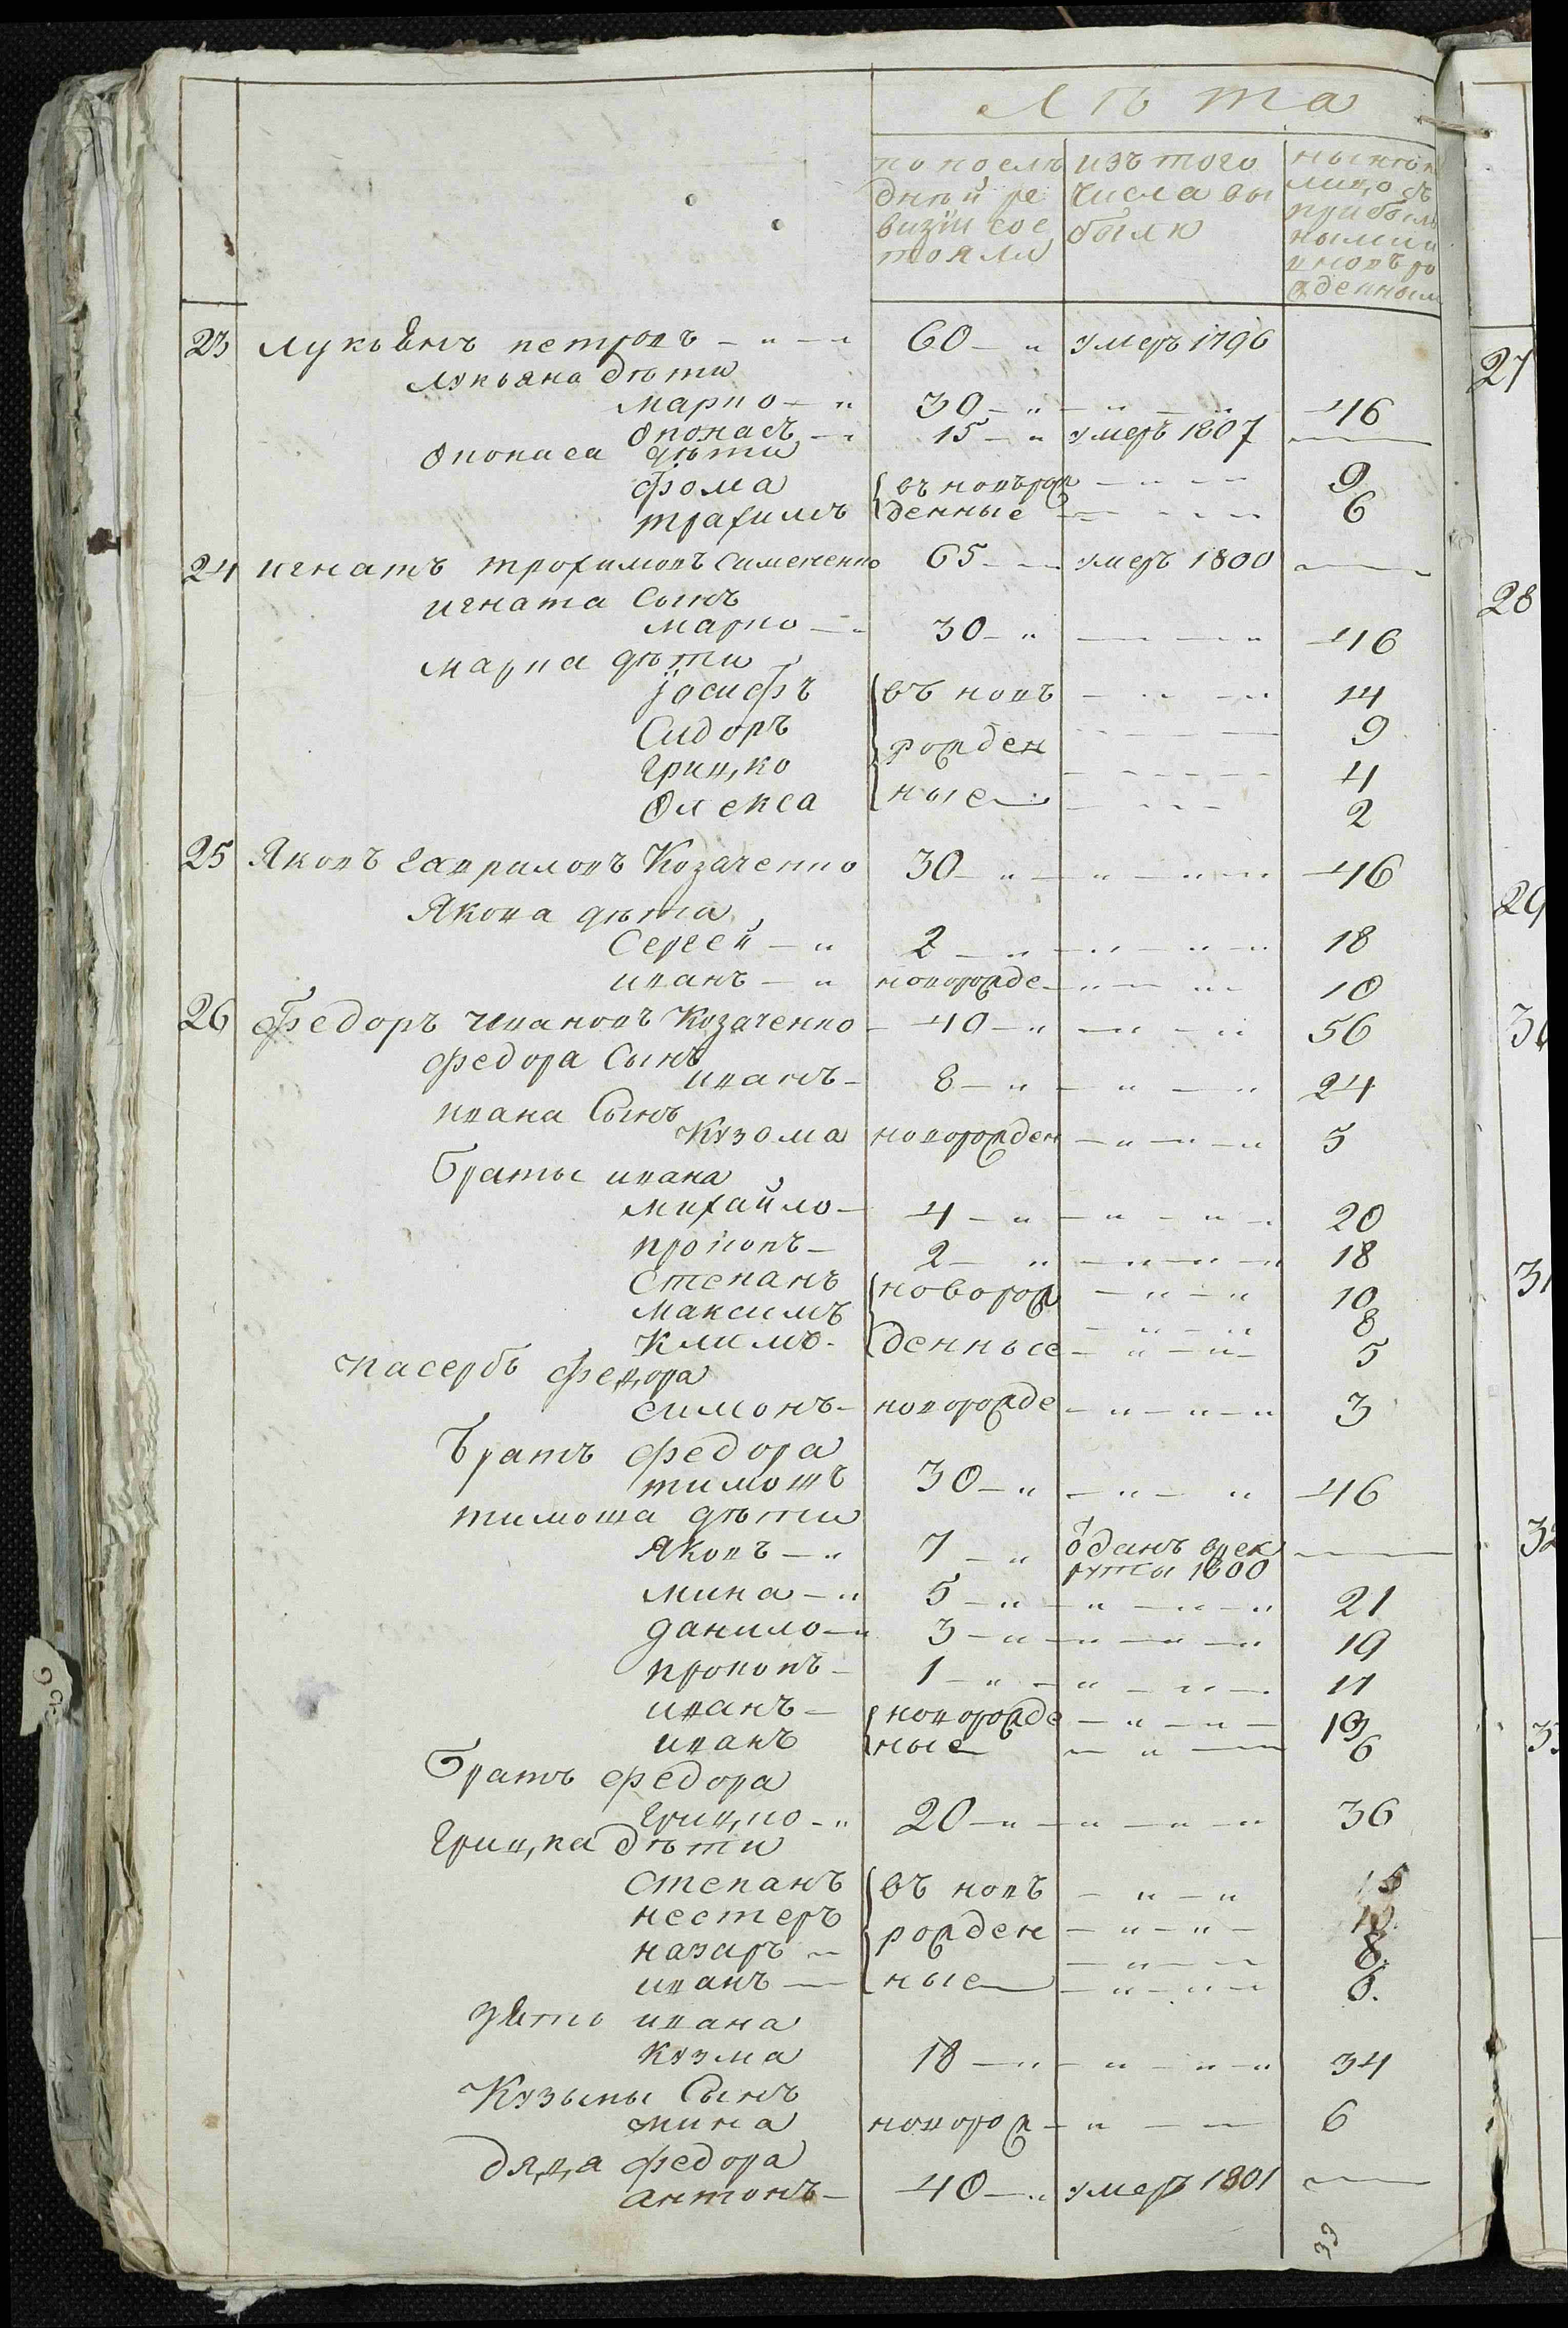 Лѣта
по послѣ дней ре визіи сос тояли
изъ того числа вы были
нынѣ на лицо съ прибыл ными и вновь ро жденным
23 Лукьянъ петровъ 60 умеръ 1796
Лукьяна дѣти
марко 30 46
Опонасъ 15 умеръ 1807
Опонаса дѣти
фома въ новь рож 9
трахимъ денные 6
24 игнатъ трохимовъ Сименко 65 умеръ 1800
игната Сынъ
марко 30 46
марка дѣти
Іосифъ въ новъ 14
Сидоръ 9
Грицко рожден 4
Олекса ные 2
25 Яковъ Гавриловъ Козаченко 30 46
Якова дѣти
Сергей 2 18
иванъ новорожде 10
26 Федоръ Ивановъ Козаченко 40 56
федора Сынъ
иванъ 8 24
ивана Сынъ
Кузома новорожден 5
Браты ивана
михайло 4 20
прокопъ 2 18
Степанъ новорож 10
максимъ 8
Климъ денные 5
пасербъ федора
симонъ новорожде 3
Братъ федора
тимошъ 30 46
тимоша дѣти
Яковъ 7 ѿданъ врек руты 1800
мина 5 21
данило 3 19
прокопъ 1 17
иванъ новорожде 10
иванъ ные 6
Братъ федора
Грицко 20 36
Грицка дѣти
Степанъ въ новъ 15
нестеръ рожден 10
назаръ 8
иванъ ные 6
зять ивана
кузма 18 34
Кузьмы Сынъ
мина новорож 6
дядя федора
антонъ 40 умеръ 1801
33
27
28
29
30
31
32
33